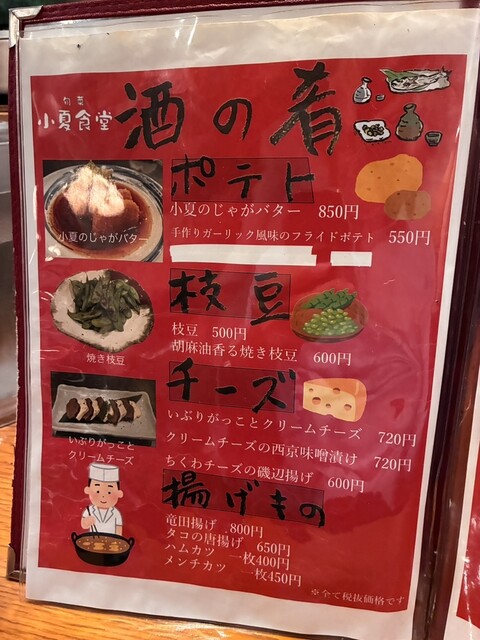 旬菜
小夏食堂
酒の肴
ポテト
小夏のじゃがバター 850円
手作りガーリック風味のフライドポテト 550円
小夏のじゃがバター
枝豆
枝豆 500円
胡麻油香る焼き枝豆 600円
焼き枝豆
チーズ
いぶりがっことクリームチーズ 720円
クリームチーズの西京味噌漬け 720円
ちくわチーズの磯辺揚げ 600円
いぶりがっこと
クリームチーズ
揚げもの
竜田揚げ 800円
タコの唐揚げ 650円
ハムカツ 一枚400円
メンチカツ 一枚450円
※全て税抜価格です